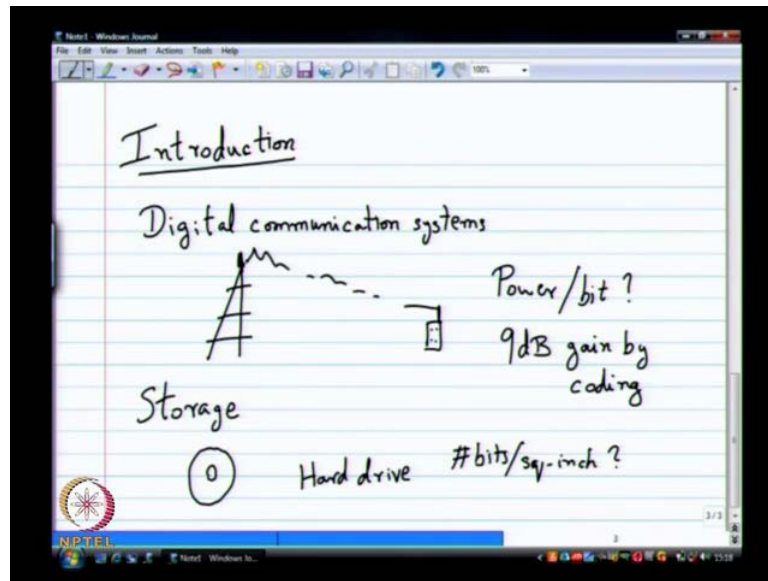 Note1 - Windows Journal
File Edit View Insert Actions Tools Help
100%
Introduction
Digital communication systems
Power/bit ?
9dB gain by
coding
Storage
Hard drive #bits/sq-inch ?
3/3
NPTEL
Note1 - Windows Jo...
3
1518